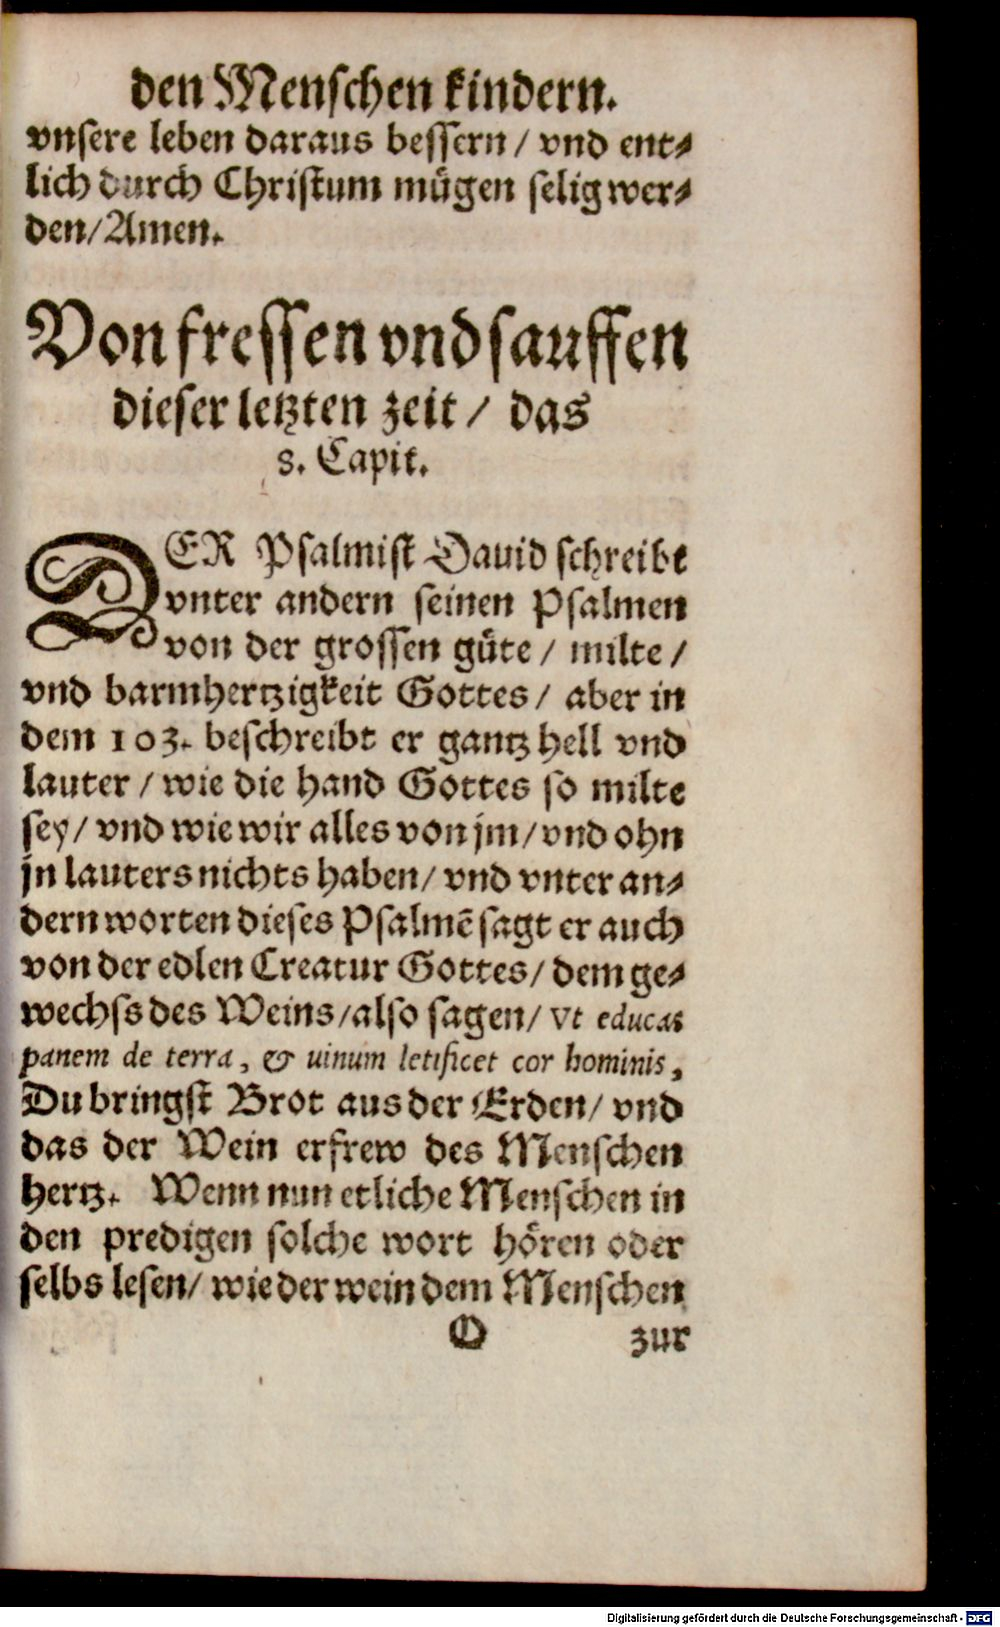 den Menschen kindern.
vnsere leben daraus bessern / vnd ent⸗
lich durch Christum mügen selig wer⸗
den / Amen.
Von fressen vnd sauffen
dieser letzten zeit / das
8. Capit.
DER Psalmist Dauid schreibt
vnter andern seinen Psalmen
von der grossen güte / milte /
vnd barmhertzigkeit Gottes / aber in
dem 103. beschreibt er gantz hell vnd
lauter / wie die hand Gottes so milte
sey / vnd wie wir alles von jm / vnd ohn
jn lauters nichts haben / vnd vnter an⸗
dern worten dieses Psalmē sagt er auch
von der edlen Creatur Gottes / dem ge⸗
wechss des Weins / also sagen / Vt educas
panem de terra, & uinum letificet cor hominis,
Du bringst Brot aus der Erden / vnd
das der Wein erfrew des Menschen
hertz. Wenn nun etliche Menschen in
den predigen solche wort hören oder
selbs lesen / wie der wein dem Menschen
O zur
Digitalisierung gefördert durch die Deutsche Forschungsgemeinschaft - DFG